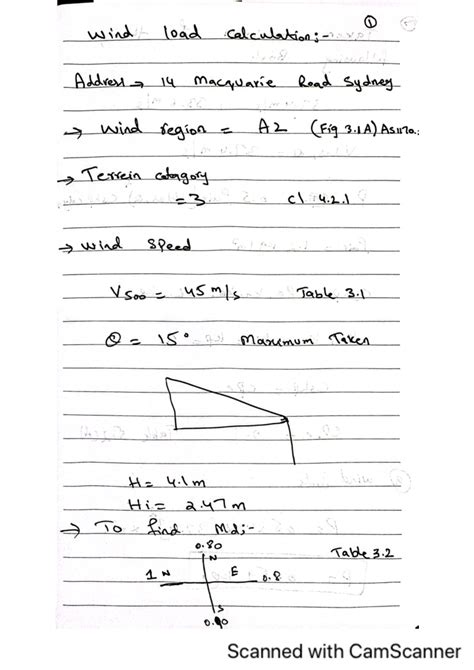 ①
Wind load calculation:-
Address → 14 Macquarie Road Sydney
→ Wind region = A2 (Fig 3.1A) AS1170.
→ Terrein catagory
= 3 cl 4.2.1
→ Wind Speed
V500 = 45 m/s Table 3.1
θ = 15° Maximum Taken
H = 4.1m
Hi = 2.47m
→ To find Md:-
Table 3.2
0.80
N
1 W E 0.8
S
0.90
Scanned with CamScanner